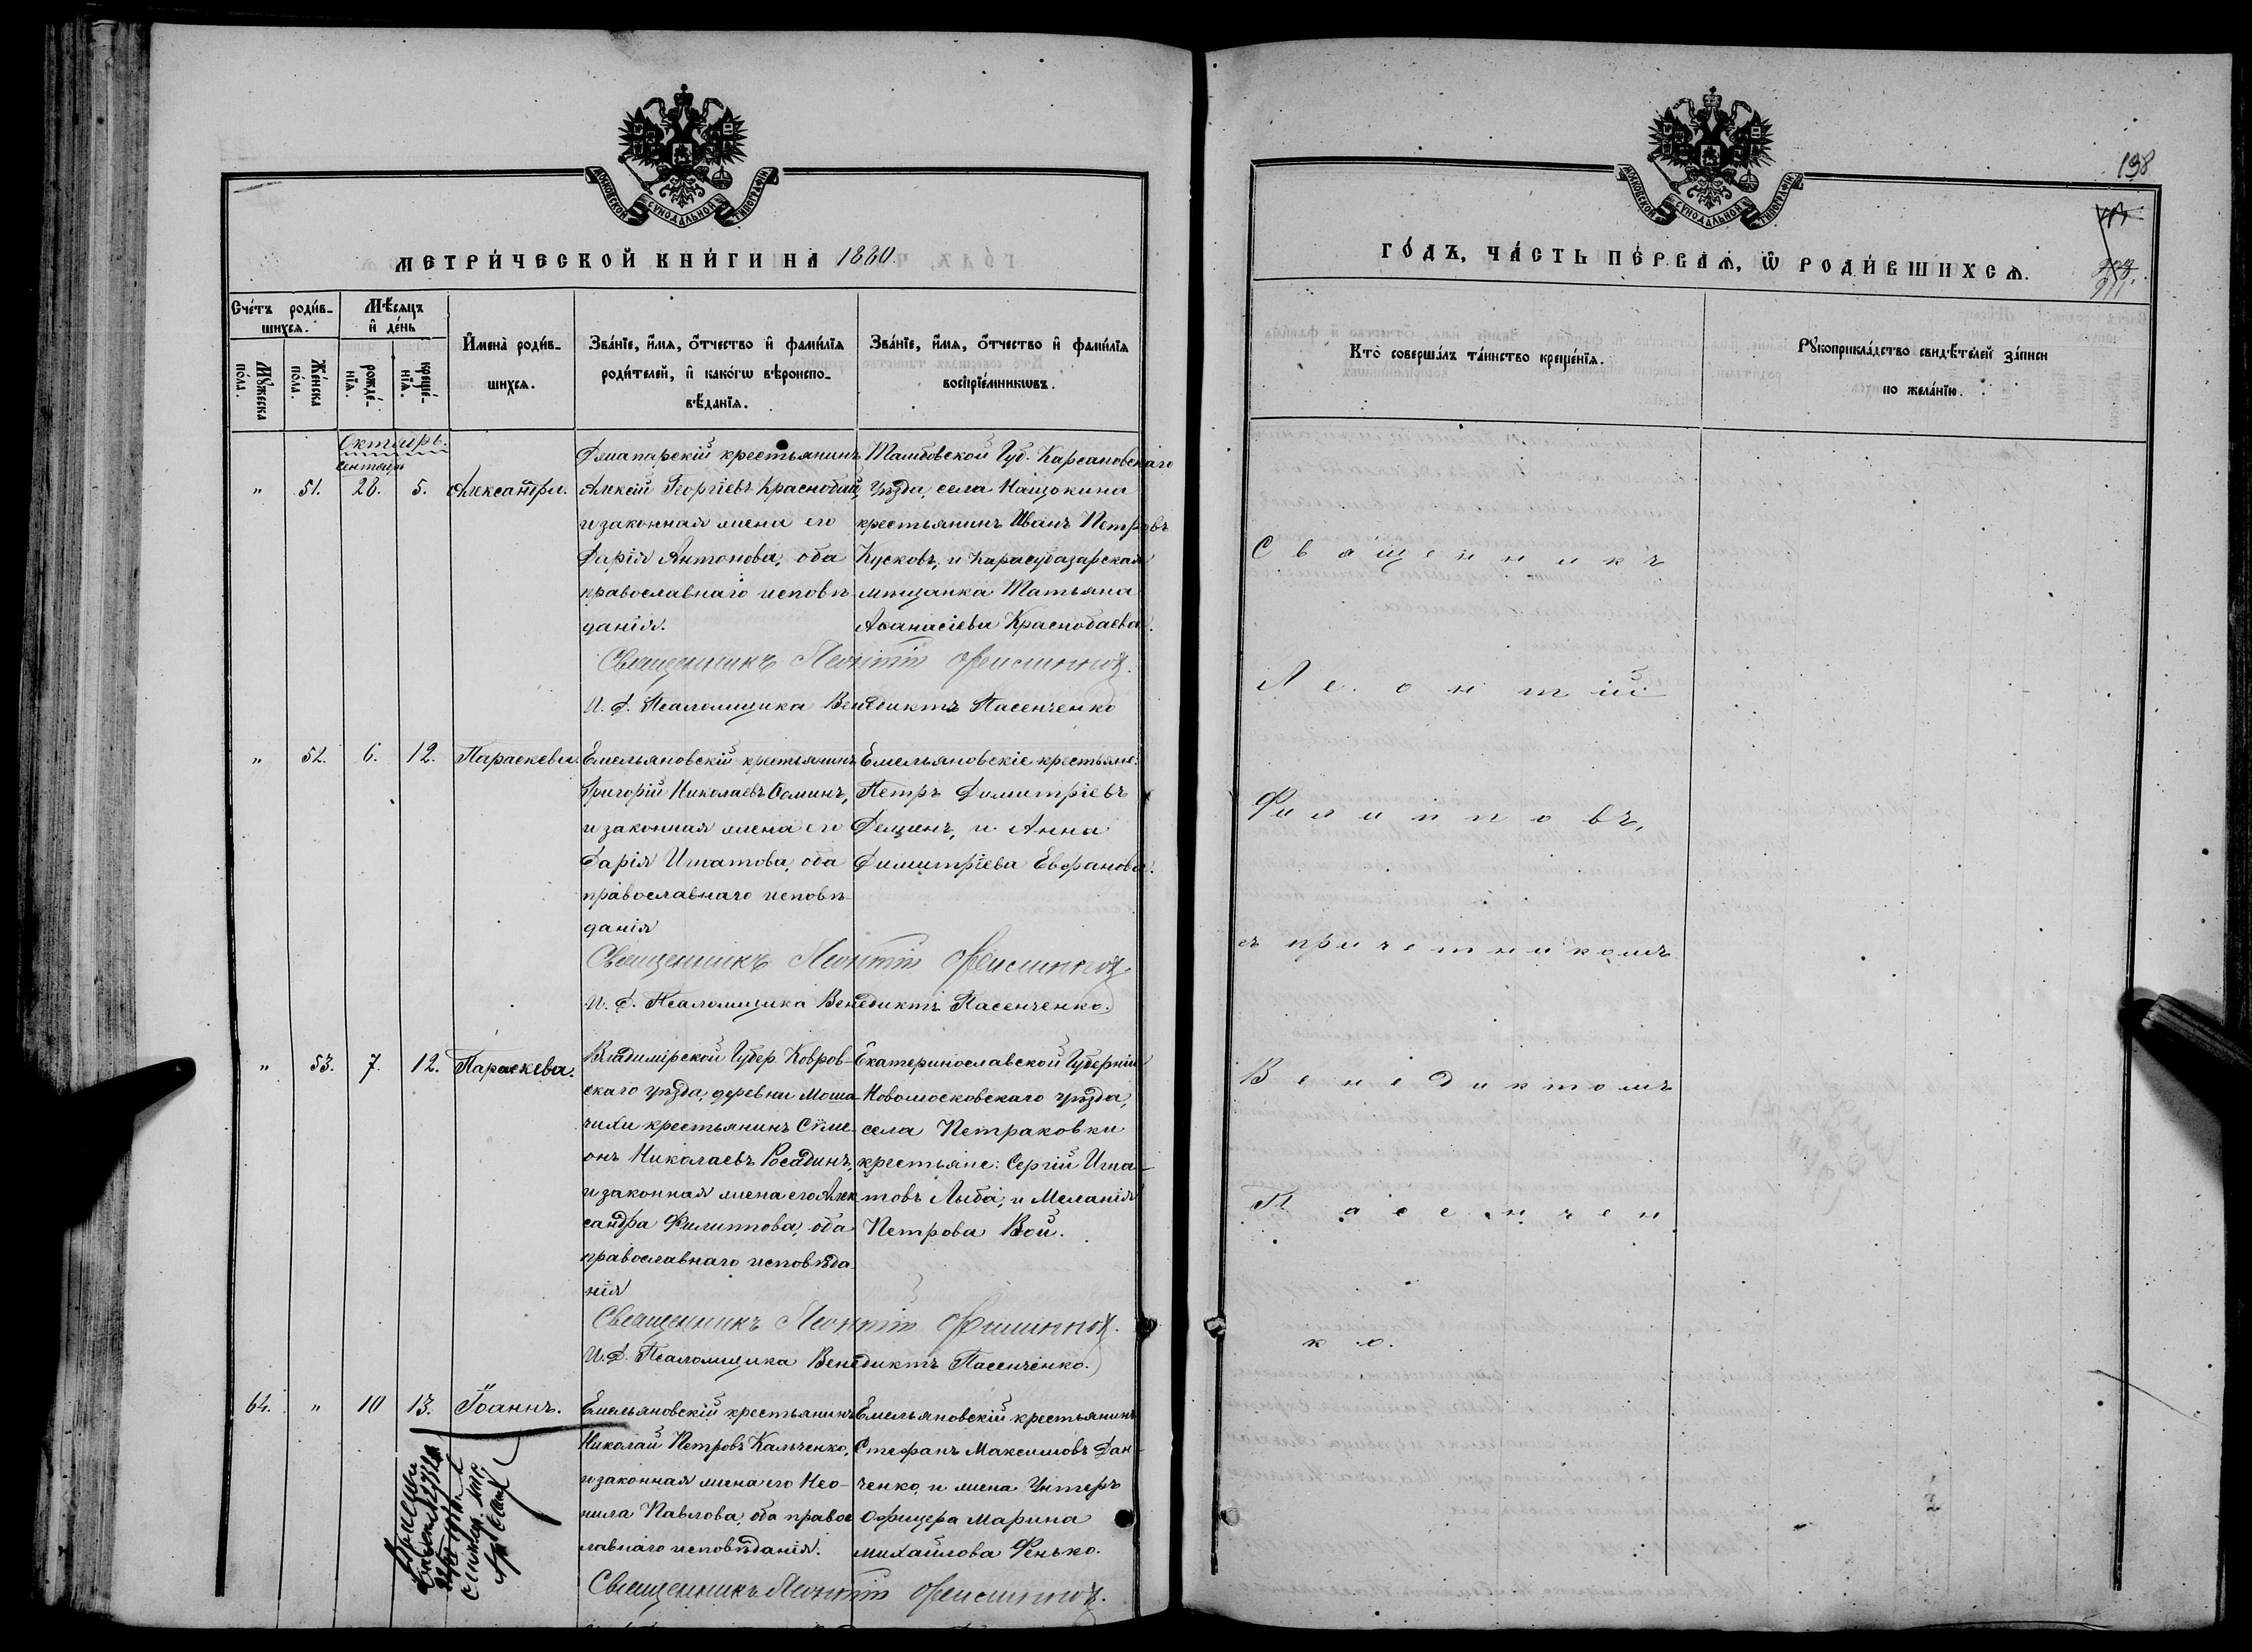 МОСКОВСКОЙ СУНОДАЛЬНОЙ ТИПОГРАФІИ
МЕТРИ́ЧЕСКОЙ КНИ́ГИ НА 1880.
Сче́тъ роди́в-
шихсѧ.
Мѣ́сѧцъ
и҆ де́нь
Мꙋ́жеска
по́ла.
Же́нска
по́ла.
рожде́-
нїѧ.
креще́-
нїѧ.
И҆мена̀ роди́в-
шихсѧ.
Зва́нїе, и҆́мѧ, о҆́тчество и҆ фами́лїѧ
роди́телей, и҆ како́гѡ вѣроиспо-
вѣ́данїѧ.
Зва́нїе, и҆́мѧ, о҆́тчество и҆ фами́лїѧ
воспрїе́мникѡвъ.
Октябрь.
Сентябрь
" 51. 28. 5. Александра.
крестьянинъ
Алексій Георгіевъ Краснобай,
и законная жена его
Дарія Антонова, оба
православнаго исповѣ-
данія.
Тамбовской Губ. Карсановскаго
уѣзда, села Нащокина
крестьянинъ Иванъ Петровъ
Кусковъ, и Карасубазарская
мѣщанка Татьяна
Аѳанасіева Краснобаева.
Священникъ Леонтій Филипповъ.
И. д. Псаломщика Венедиктъ Пасенченко
" 52. 6. 12. Параскева.
Емельяновскій крестьянинъ
Григорій Николаевъ Ѳоминъ,
и законная жена его
Дарія Игнатова, оба
православнаго исповѣ-
данія
Емельяновскіе крестьяне:
Петръ Димитріевъ
и Анна
Димитріева
Священникъ Леонтій Филипповъ.
И. д. Псаломщика Венедиктъ Пасенченко.
" 53. 7. 12. Параскева.
Владимірской Губер. Ковров-
скаго уѣзда, деревни Моша-
чихи крестьянинъ Симе-
онъ Николаевъ Росадинъ,
и законная жена его Алек
сандра Филиппова, оба
православнаго исповѣда-
нія
Екатеринославской Губерніи
Новомосковскаго уѣзда,
села Петраковки
крестьяне: Сергій Игна-
товъ Лыба, и Меланія
Петрова Вой.
Священникъ Леонтій Филипповъ.
И. д. Псаломщика Венедиктъ Пасенченко.
64. " 10 13. Іоаннъ.
Емельяновскій крестьянинъ
Николай Петровъ Кальченко,
и законная жена его Нео-
нила Павлова, оба правос
лавнаго исповѣданія.
Емельяновскій крестьянинъ
Стефанъ Максимовъ Дан-
ченко, и жена Унтеръ
Офицера Марина
Михайлова Фенько.
Священникъ Леонтій Филипповъ.
МОСКОВСКОЙ СУНОДАЛЬНОЙ ТИПОГРАФІИ
198
ГО́ДЪ, ЧА́СТЬ ПЕ́РВАѦ, Ѡ҆ РОДИ́ВШИХСѦ.
Кто̀ соверша́лъ та́инство креще́нїѧ.
Рꙋкоприкла́дство свидѣ́телей за́писи
по жела́нїю.
Священникъ
Леонтій
Филипповъ,
съ причетникомъ
Венедиктомъ
Пасенчен
ко.